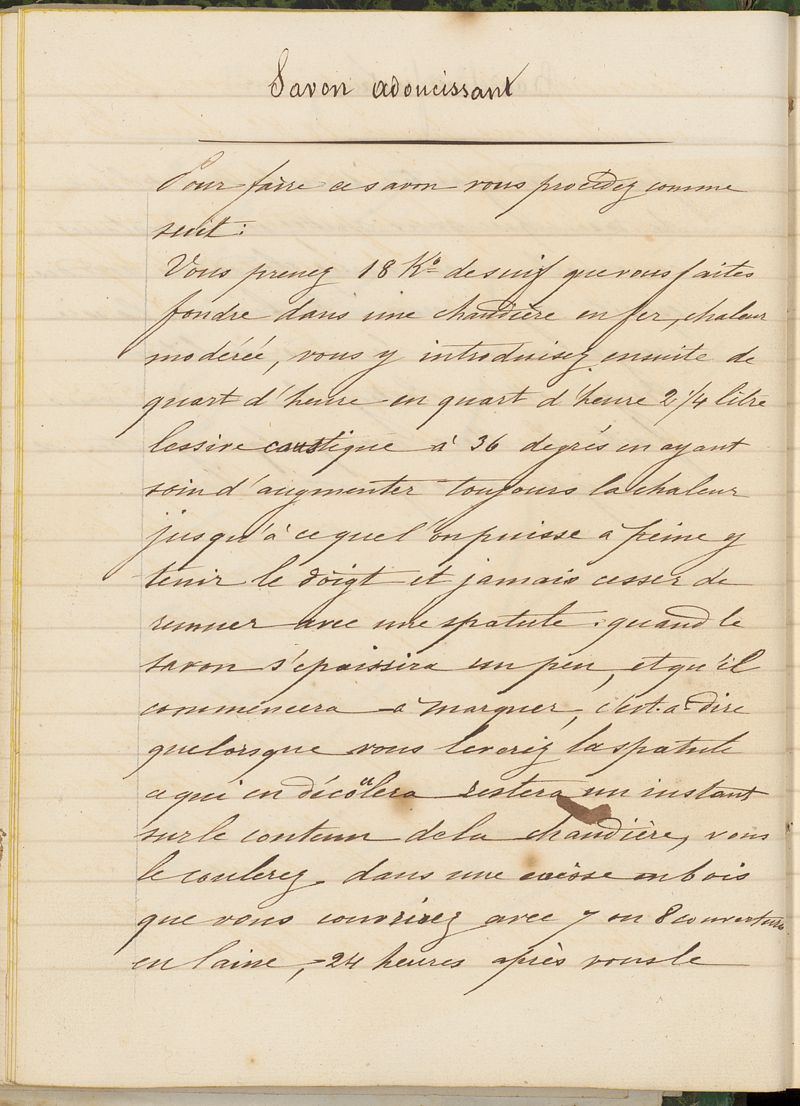 Savon adoucissant
Pour faire ce savon vous procédez comme
suit :
Vous prenez 18 Kº de suif que vous faites
fondre dans une chaudière en fer, chaleur
modérée, vous y introduisez ensuite de
quart d'heure en quart d'heure 2 1/4 litre
lessive caustique à 36 degrés en ayant
soin d'augmenter toujours la chaleur
jusqu'à ce que l'on puisse à peine y
tenir le doigt et jamais cesser de
remuer avec une spatule : quand le
savon s'epaissira un peu, et qu'il
commencera à marquer, c'est-a-dire
que lorsque vous leverez la spatule
ce qui en découlera restera un instant
sur le contenu de la chaudière, vous
le coulerez dans une caisse en bois
que vous couvrirez avec 7 ou 8 couvertures
en laine, = 24 heures après vous le